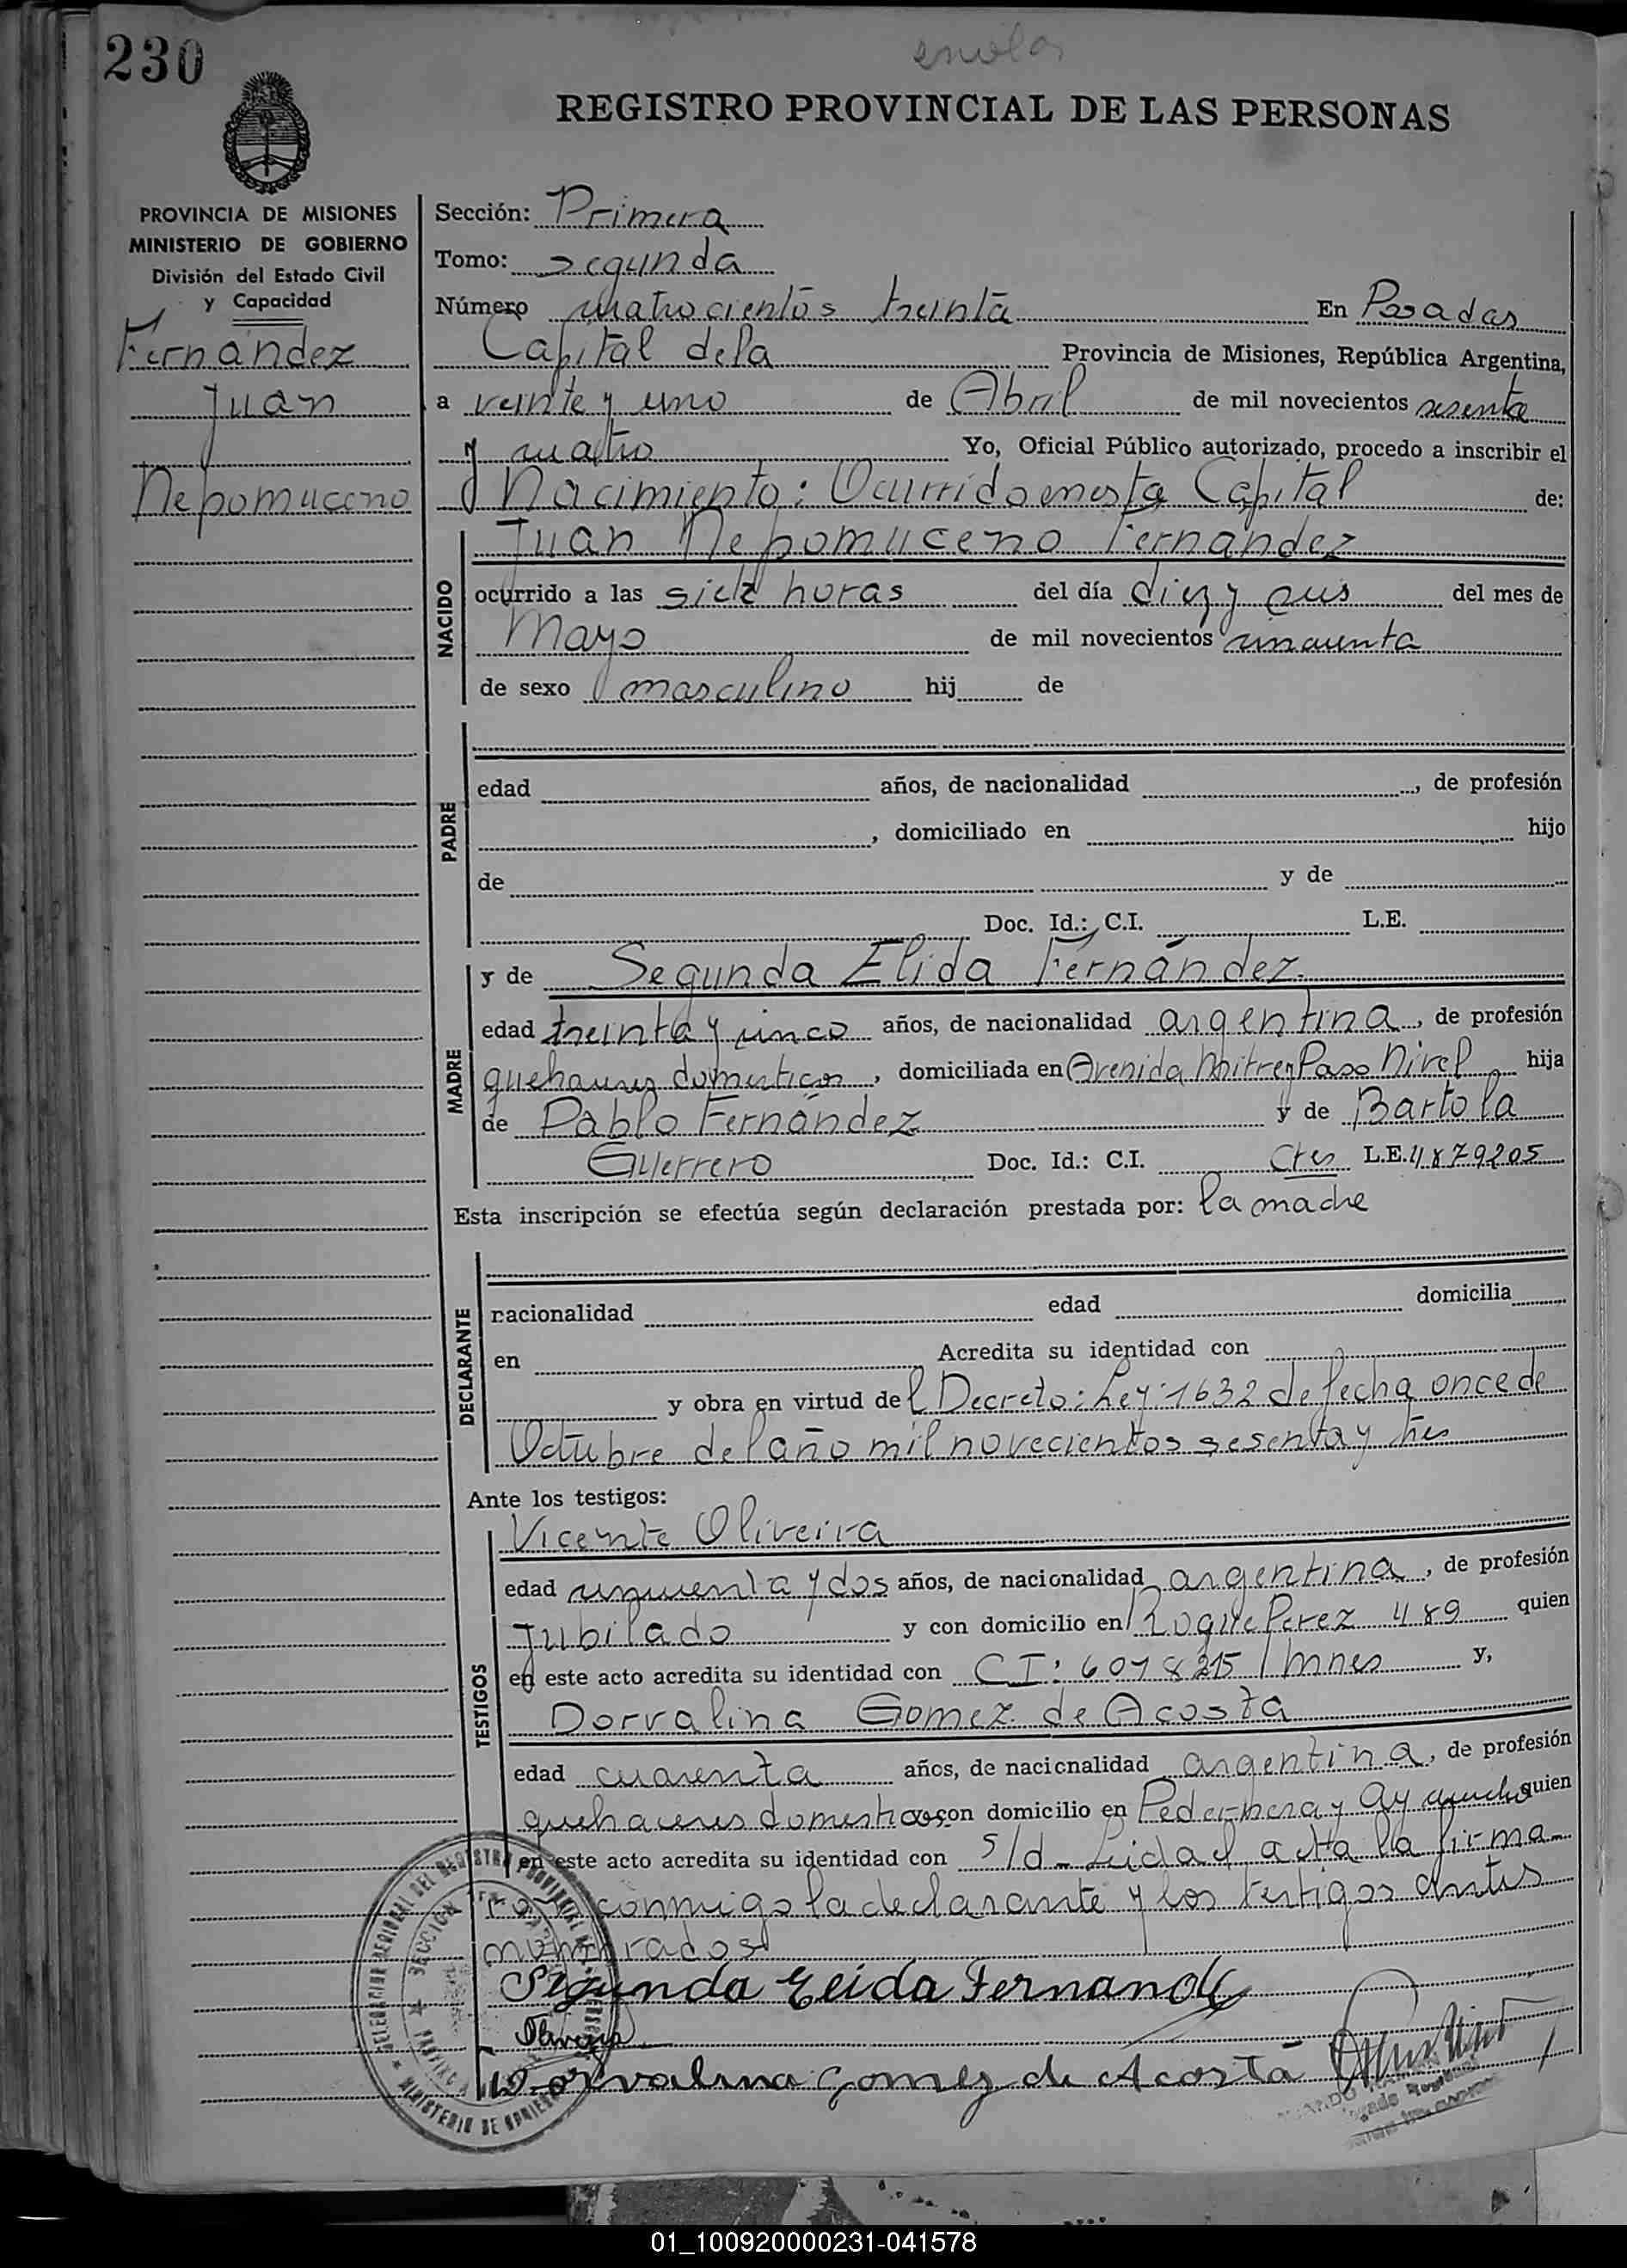 230
REGISTRO PROVINCIAL DE LAS PERSONAS
PROVINCIA DE MISIONES
MINISTERIO DE GOBIERNO
División del Estado Civil
y Capacidad
Fernández
Juan
Nepomuceno
Sección: Primera
Tomo: Segunda
Número cuatrocientos treinta En Posadas
Capital dela Provincia de Misiones, República Argentina,
a veinte y uno de Abril de mil novecientos sesenta
y cuatro Yo, Oficial Público autorizado, procedo a inscribir el
Nacimiento: Ocurrido en esta Capital de:
Juan Nepomuceno Fernández
NACIDO
ocurrido a las siete horas del día diez y seis del mes de
Mayo de mil novecientos cincuenta
de sexo masculino hij de
PADRE
edad años, de nacionalidad , de profesión
, domiciliado en hijo
de y de
Doc. Id.: C.I. L.E.
MADRE
y de Segunda Elida Fernández.
edad treinta y cinco años, de nacionalidad argentina, de profesión
quehaceres domesticos, domiciliada en Avenida Mitre y Paso Nivel hija
de Pablo Fernández y de Bartola
Guerrero Doc. Id.: C.I. Ctes L.E. 4879205
Esta inscripción se efectúa según declaración prestada por: la madre
DECLARANTE
nacionalidad edad domicilia
en Acredita su identidad con
y obra en virtud del Decreto: Ley: 1632 de fecha once de
Octubre del año mil novecientos sesenta y tres
Ante los testigos:
TESTIGOS
Vicente Oliveira
edad cincuenta y dos años, de nacionalidad argentina, de profesión
Jubilado y con domicilio en Roque Perez 489 quien
en este acto acredita su identidad con CI: 6078215/Mnes y,
Dorvalina Gomez de Acosta
edad cuarenta años, de nacionalidad argentina, de profesión
quehaceres domesticos con domicilio en Pedernera y Ayacucho quien
en este acto acredita su identidad con s/d - Leida el acta la firma-
ron conmigo la declarante y los testigos antes
nombrados
Segunda Elida Fernandez
Oliveira
Dorvalina Gomez de Acosta
SECCION
MINISTERIO DE GOBIERNO
01_100920000231-041578